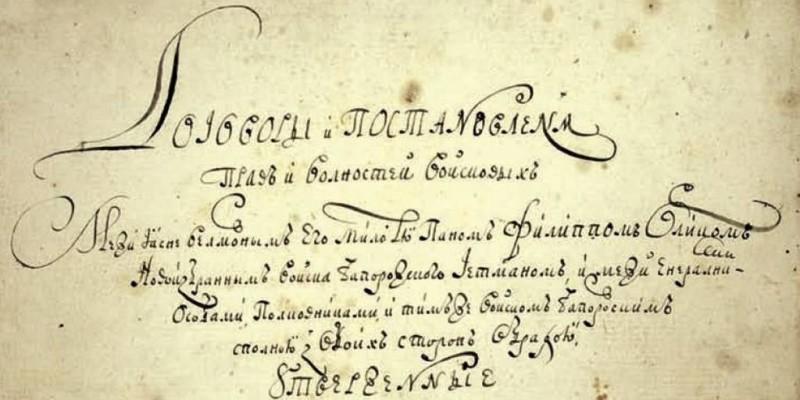 Договоры и Постановленя
Правъ и волностей Войсковыхъ
Межи Ясне велможнымъ Его милостю Паномъ Филиппомъ Орликомъ
Новоизбраннымъ Войска Запорожского Гетманомъ, и межи Енерални-
Особами Полковниками, и тимъже Войскомъ Запорожскимъ
сполною з обоихъ сторонъ обрадою,
Утверженные